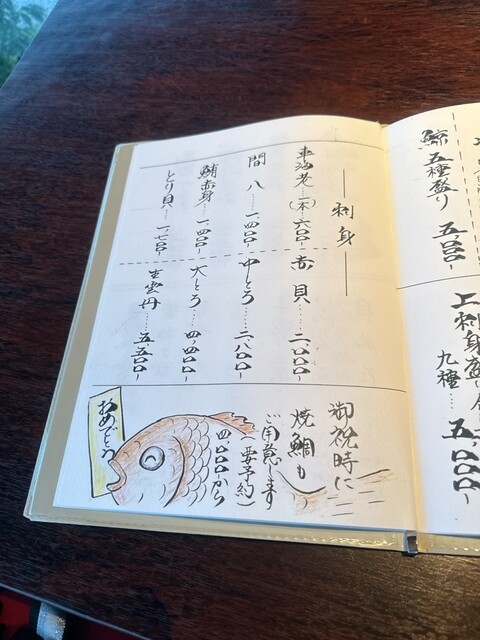 鯨五種盛り 五、〇〇〇-
上刺身盛り合
九種… 五、〇〇〇-
— 刺身 —
車海老…(一本)六〇〇-
間八……一、四〇〇-
鮪赤身……一、四〇〇-
とり貝……一、七〇〇-
赤貝……二、〇〇〇-
中とろ……二、八〇〇-
大とろ……四、四〇〇-
生雲丹……五、五〇〇-
御祝時に
焼鯛も
ご用意します
(要予約)
四、〇〇〇から
おめでとう